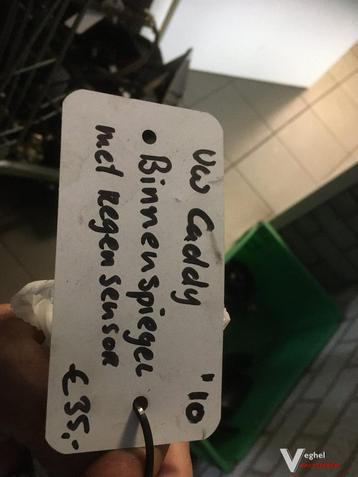 VW Caddy '10
• Binnenspiegel
met Regensensor
€35,-
Veghel